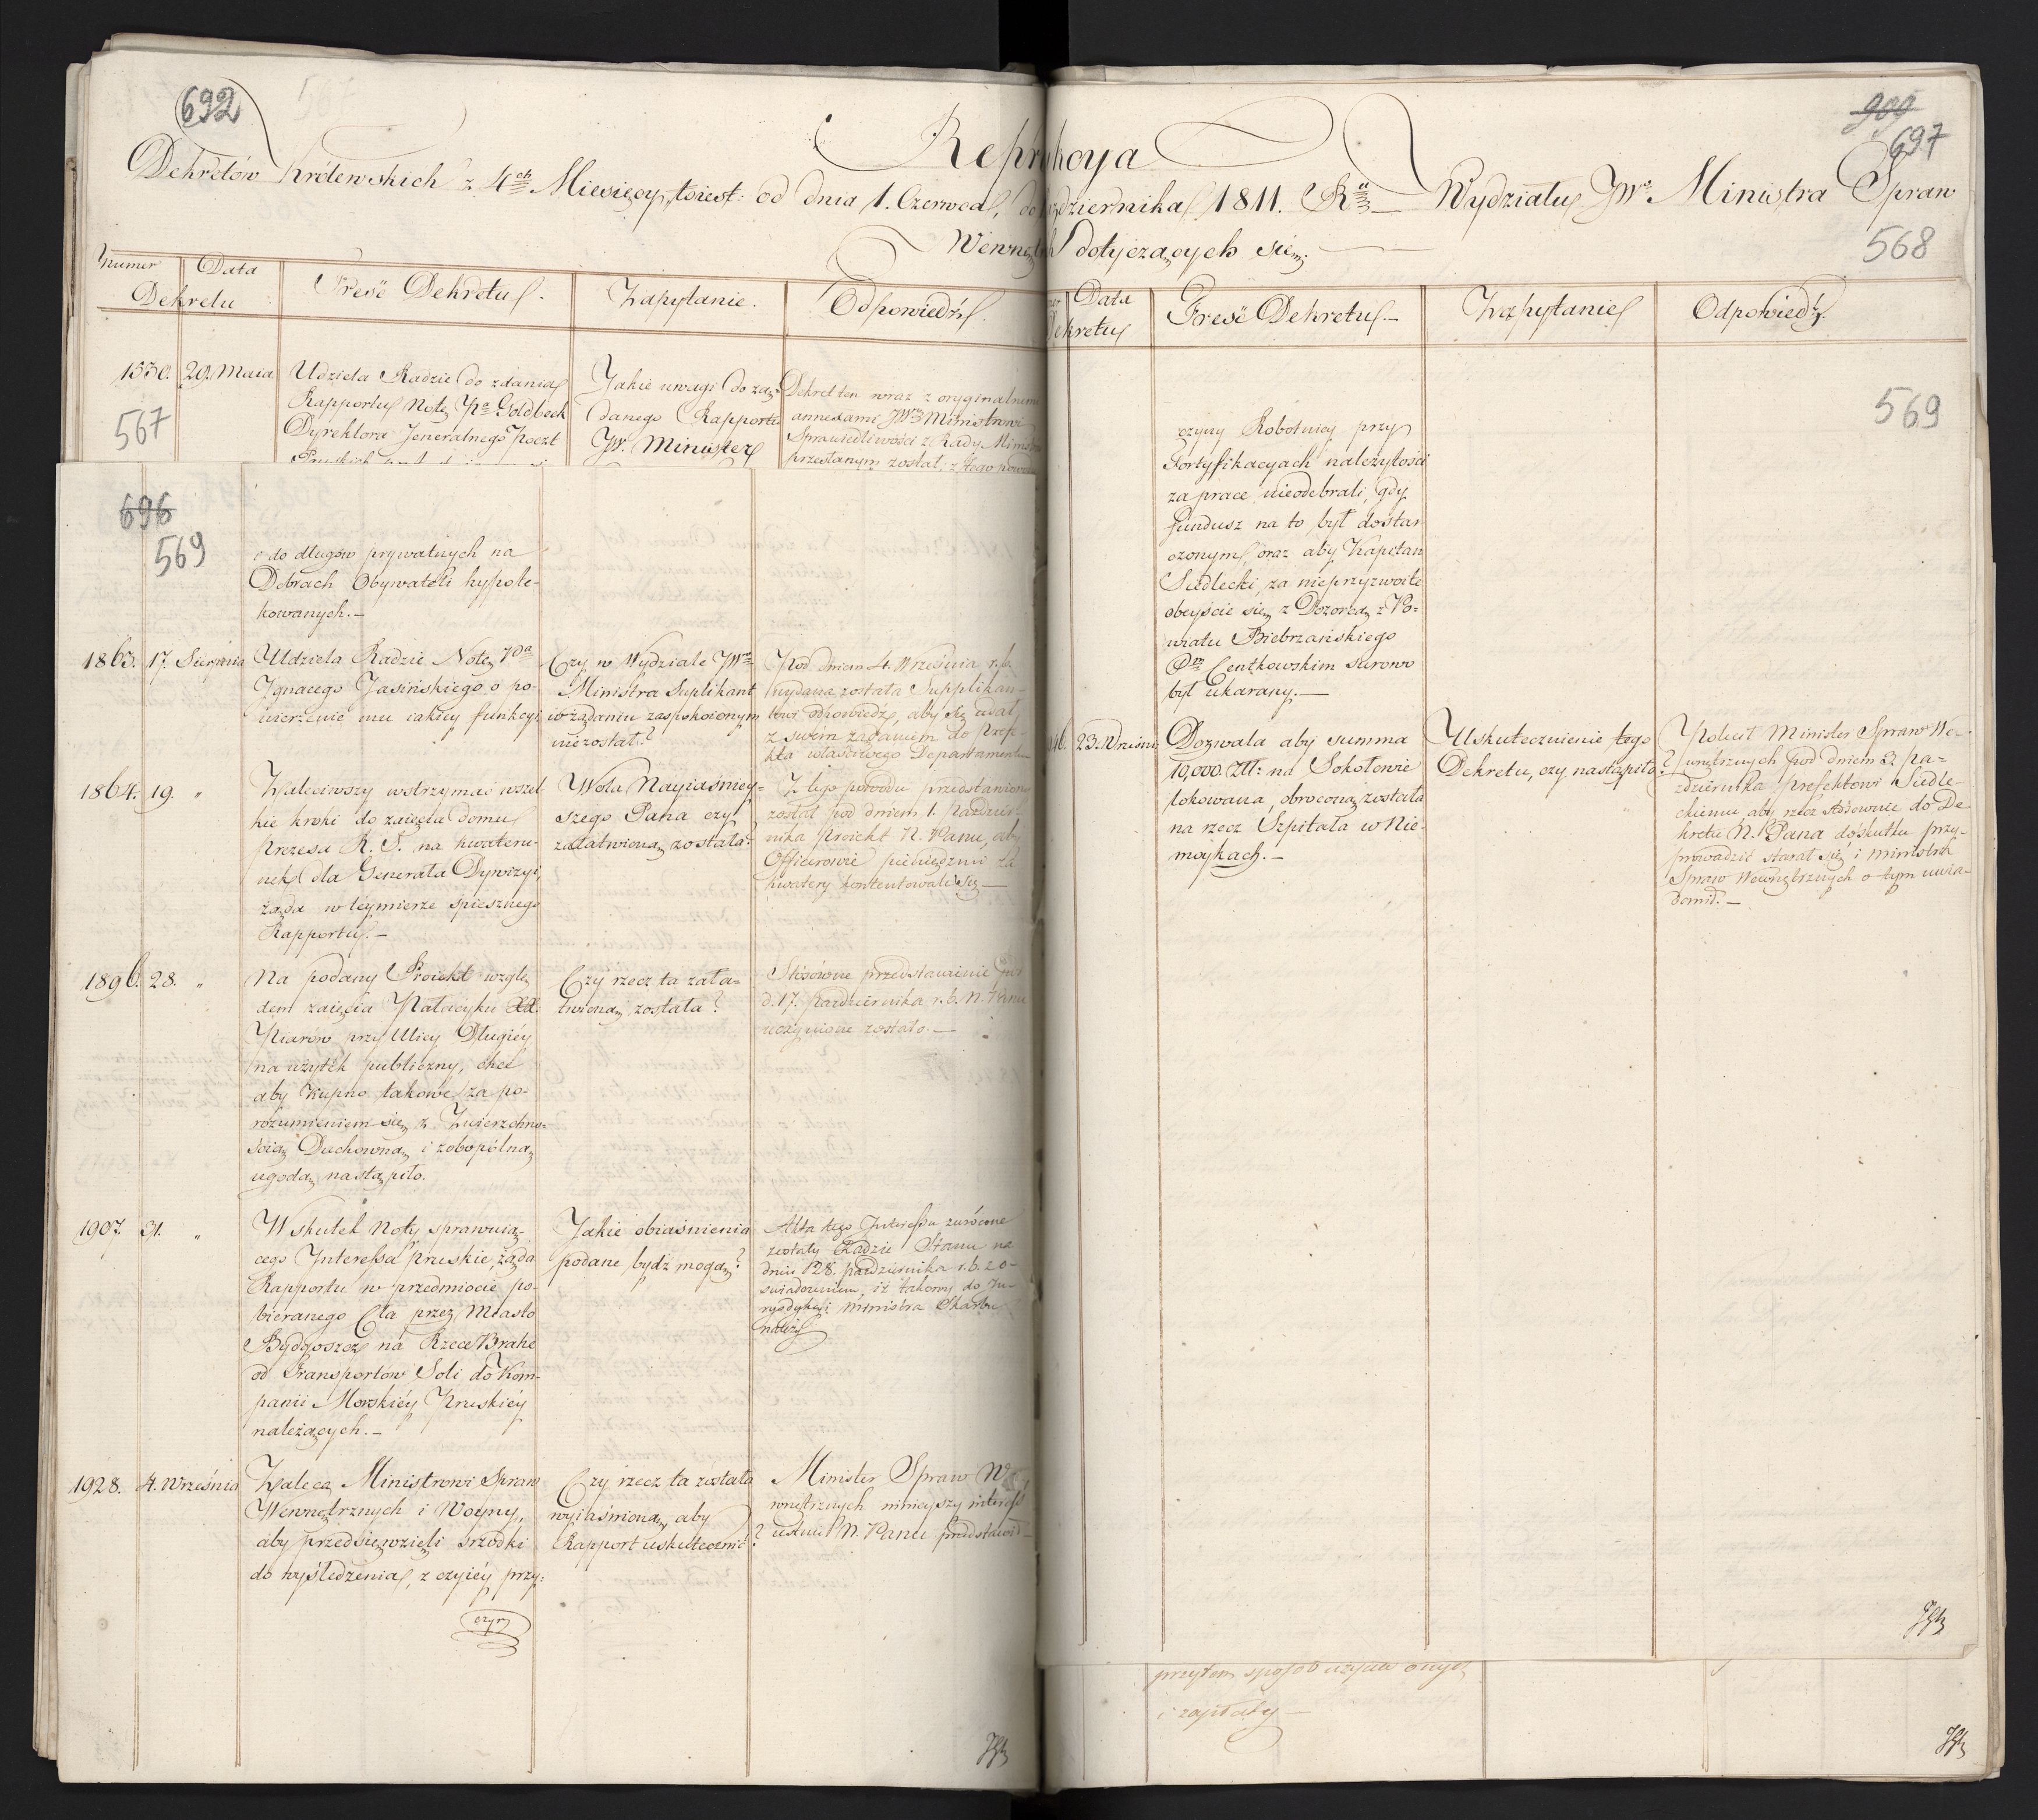 692
567
909
697
Dekretów Królewskich z 4ch Miesięcy, toiest: od dnia 1. Czerwca, do
dziernika 1811. R. Wydziału JW. Ministra Spraw
Wewnętrznych dotyczących się.
568
Numer Data
Dekretu
Treść Dekretu.
Zapytanie.
Odpowiedź.
Data
Dekretu
Treść Dekretu.
Zapytanie
Odpowiedź.
1550. 29. Maia
567
Udziela Radzie do zdania
Rapportu Notę Pa Goldbeck
Dyrektora Jeneralnego Poczt
Jakie uwagi do żą-
danego Rapportu
JW. Minister
Dekret ten wraz z oryginalnemi
annexami JW. Ministrowi
Sprawiedliwości z Rady Ministrów
przesłanym został, z tego powodu
696
569
do długów prywatnych na
Dobrach Obywateli hypote-
kowanych.-
1863. 17. Sierpnia
Udziela Radzie Notę Pa
Ignacego Jasińskiego o po-
wierzenie mu iakiey funkcyi
Czy w Wydziale JWo
Ministra Suplikant
w żądaniu zaspokoionym
niezostał?
Pod dniem 4. Września r. b.
wydana została Supplikan-
towi odpowiedź, aby się udał
z swem żądaniem do Prefe-
kta właściwego Departamentu
1864. 19. "
Zaleciwszy wstrzymać wszel-
kie kroki do zaięcia domu
Prezesa R. S. na kwateru-
nek dla Generała Dywizyi,
żąda w teymierze spiesznego
Rapportu.-
Wola Nayiaśniey-
szego Pana czy
załatwioną została?
Z tego powodu przedstawiony
został pod dniem 1. Paździer-
nika Proiekt N. Panu, aby
Officerowie pieniędzmi za
kwatery kontentowali się.-
1896. 28. "
Na podany Proiekt wzglę-
dem zaięcia Pałacyku XX.
Piarów przy Ulicy Długiéy
na użytek publiczny, chce
aby Kupno takowe za po-
rozumieniem się z Zwierzchno-
ścią Duchowną i zobopólną
ugodą nastąpiło.
Czy rzecz ta zała-
twioną została?
Stósowne przedstawienie pod
d. 17. Października r. b. N. Panu
uczynione zostało.-
1907. 31. "
W skutek Noty sprawuią-
cego Interessa Pruskie, żąda
Rapportu w przedmiocie po-
bieranego Cła przez Miasto
Bydgoszcz na Rzece Brahe
od Transportów Soli do Kom-
panii Morskiéy Pruskiéy
należących.-
Jakie obiaśnienia
podane bydź mogą?
Akta tego Interessu zwrócone
zostały Radzie Stanu na
dniu 28. Października r. b. z o-
świadczeniem, iż takowy do Ju-
rysdykcyi Ministra Skarbu
należy.
1928. 4. Września
Zaleca Ministrowi Spraw
Wewnętrznych i Woyny,
aby przedsięwzięli srzodki
do wyśledzenia, z czyiéy przy-
czyny
Czy rzecz ta została
wyiaśnioną, aby
Rapport uskutecznić?
Minister Spraw We-
wnętrznych ninieyszy interess
ustnie N. Panu przedstawił.-
569
czyny Robotnicy przy
Fortyfikacyach należytości
za pracę nieodebrali, gdy
fundusz na to był dostar-
czonym, oraz aby Kapitan
Siedlecki za nieprzyzwoite
obeyście się z Dozorcą z Po-
wiatu Biebrzańskiego
Pem Centkowskim surowo
był ukarany.-
23. Wrześni
Dozwala aby summa
10,000 Złł: na Sokołowie
lokowana, obróconą została
na rzecz Szpitala w Nie-
moykach.-
Uskutecznienie tego
Dekretu, czy nastąpiło?
Polecił Minister Spraw We-
wnętrznych pod dniem 3. Pa-
ździernika Prefektowi Siedle-
ckiemu, aby rzecz stósownie do De-
kretu N. Pana do skutku przy-
prowadzić starał się i Ministra
Spraw Wewnętrznych o tym uwia-
domił.-
przytem sposób użycia onych
i zapłaty-